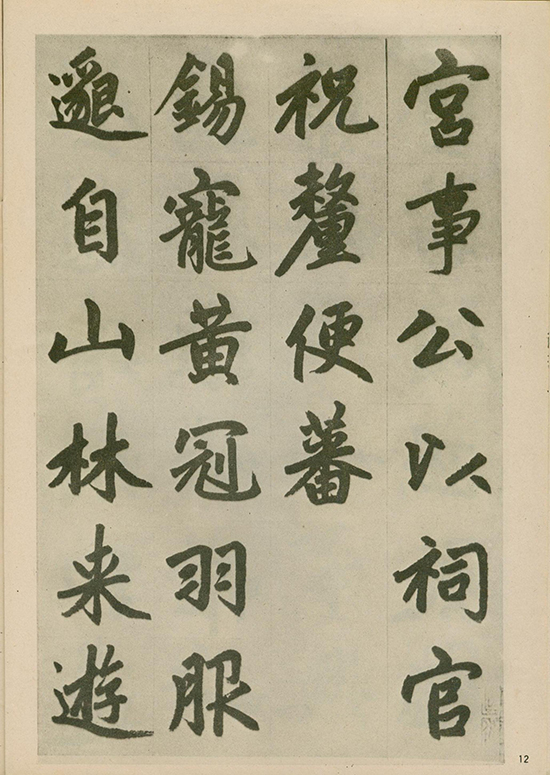 宮事公以祠官
祝釐便蕃
錫寵黃冠羽服
邈自山林来遊
12